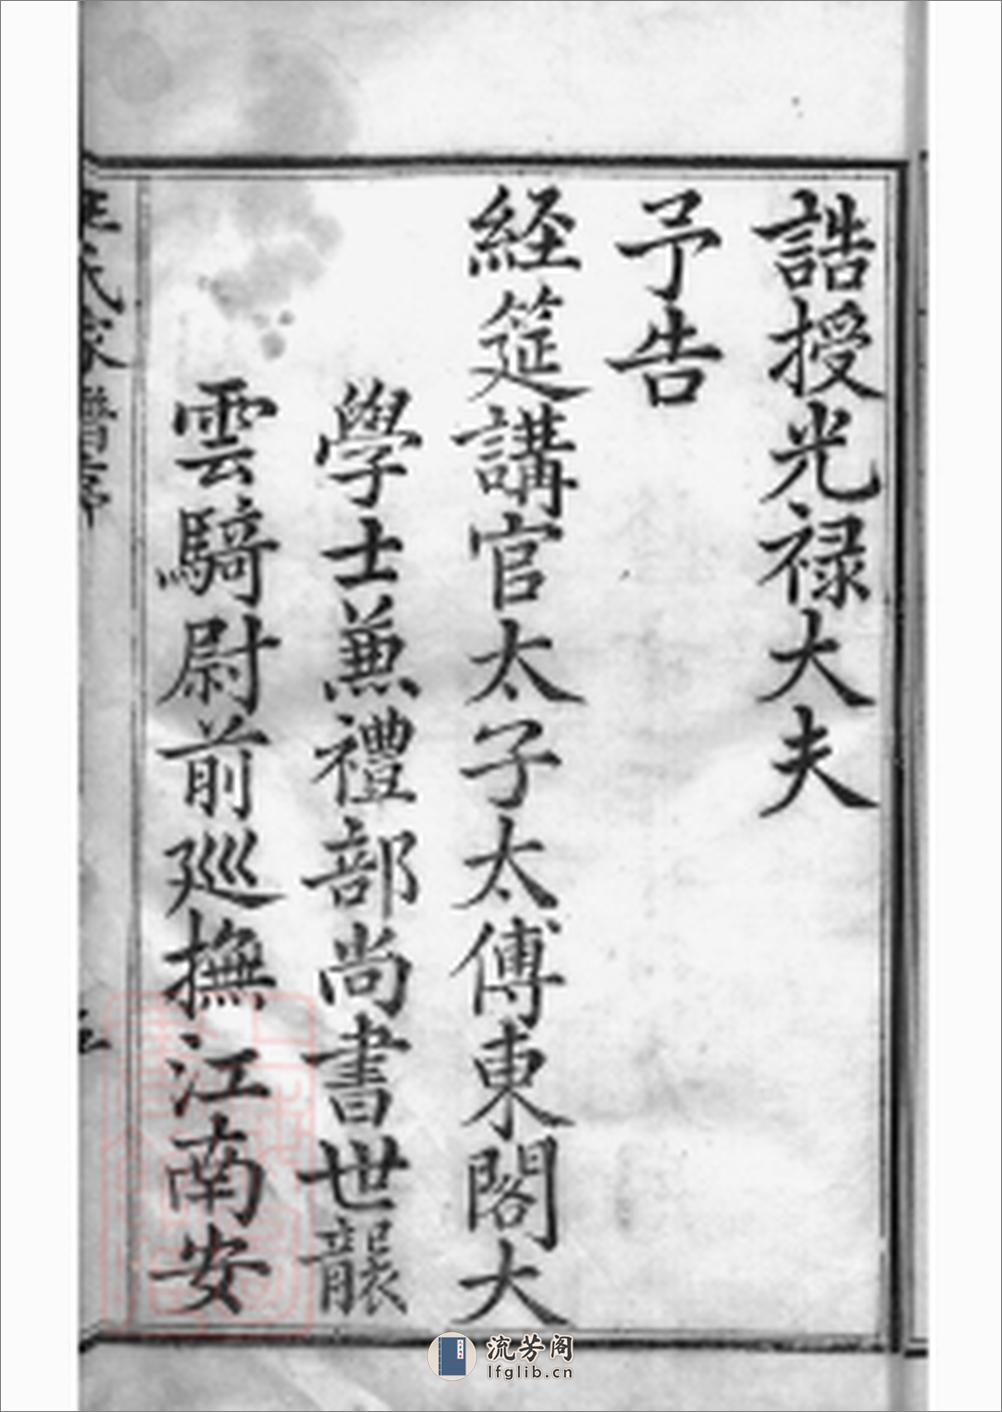 誥授光禄大夫
予告
経筵講官太子太傅東閣大
學士兼禮部尚書世襲
雲騎尉前廵撫江南安
氏家譜序
流芳阁
lfglib.cn